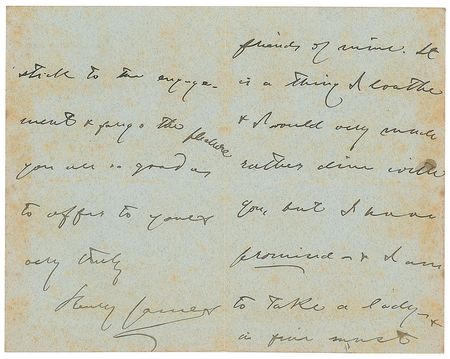 friends of mine. It
is a thing I loathe
& I would very much
rather dine with
you, but I have
promised — & I am
to take a lady, &
in fine must
stick to the engage-
ment & forgo the pleasure
you are so good as
to offer to yours
very truly
Henry James